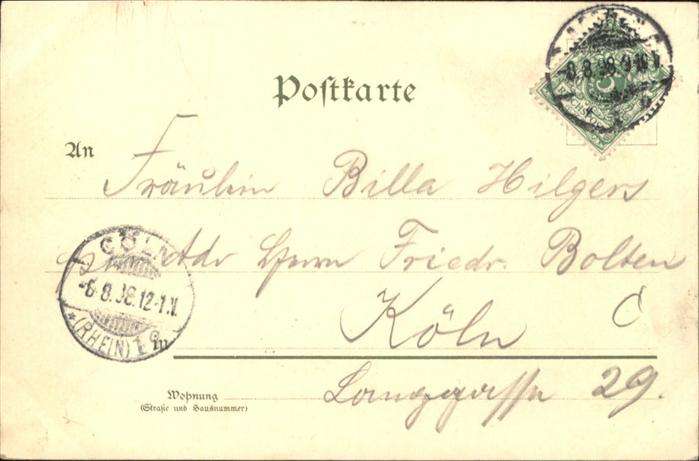 Postkarte
An
Fräulein Billa Hilgers
Adr Herrn Friedr. Bolten
Köln
in
Langgasse 29.
Wohnung
(Straße und Hausnummer)
CÖLN
-6.8.98.12-1.N.
*(RHEIN)1
8.98.9-10V